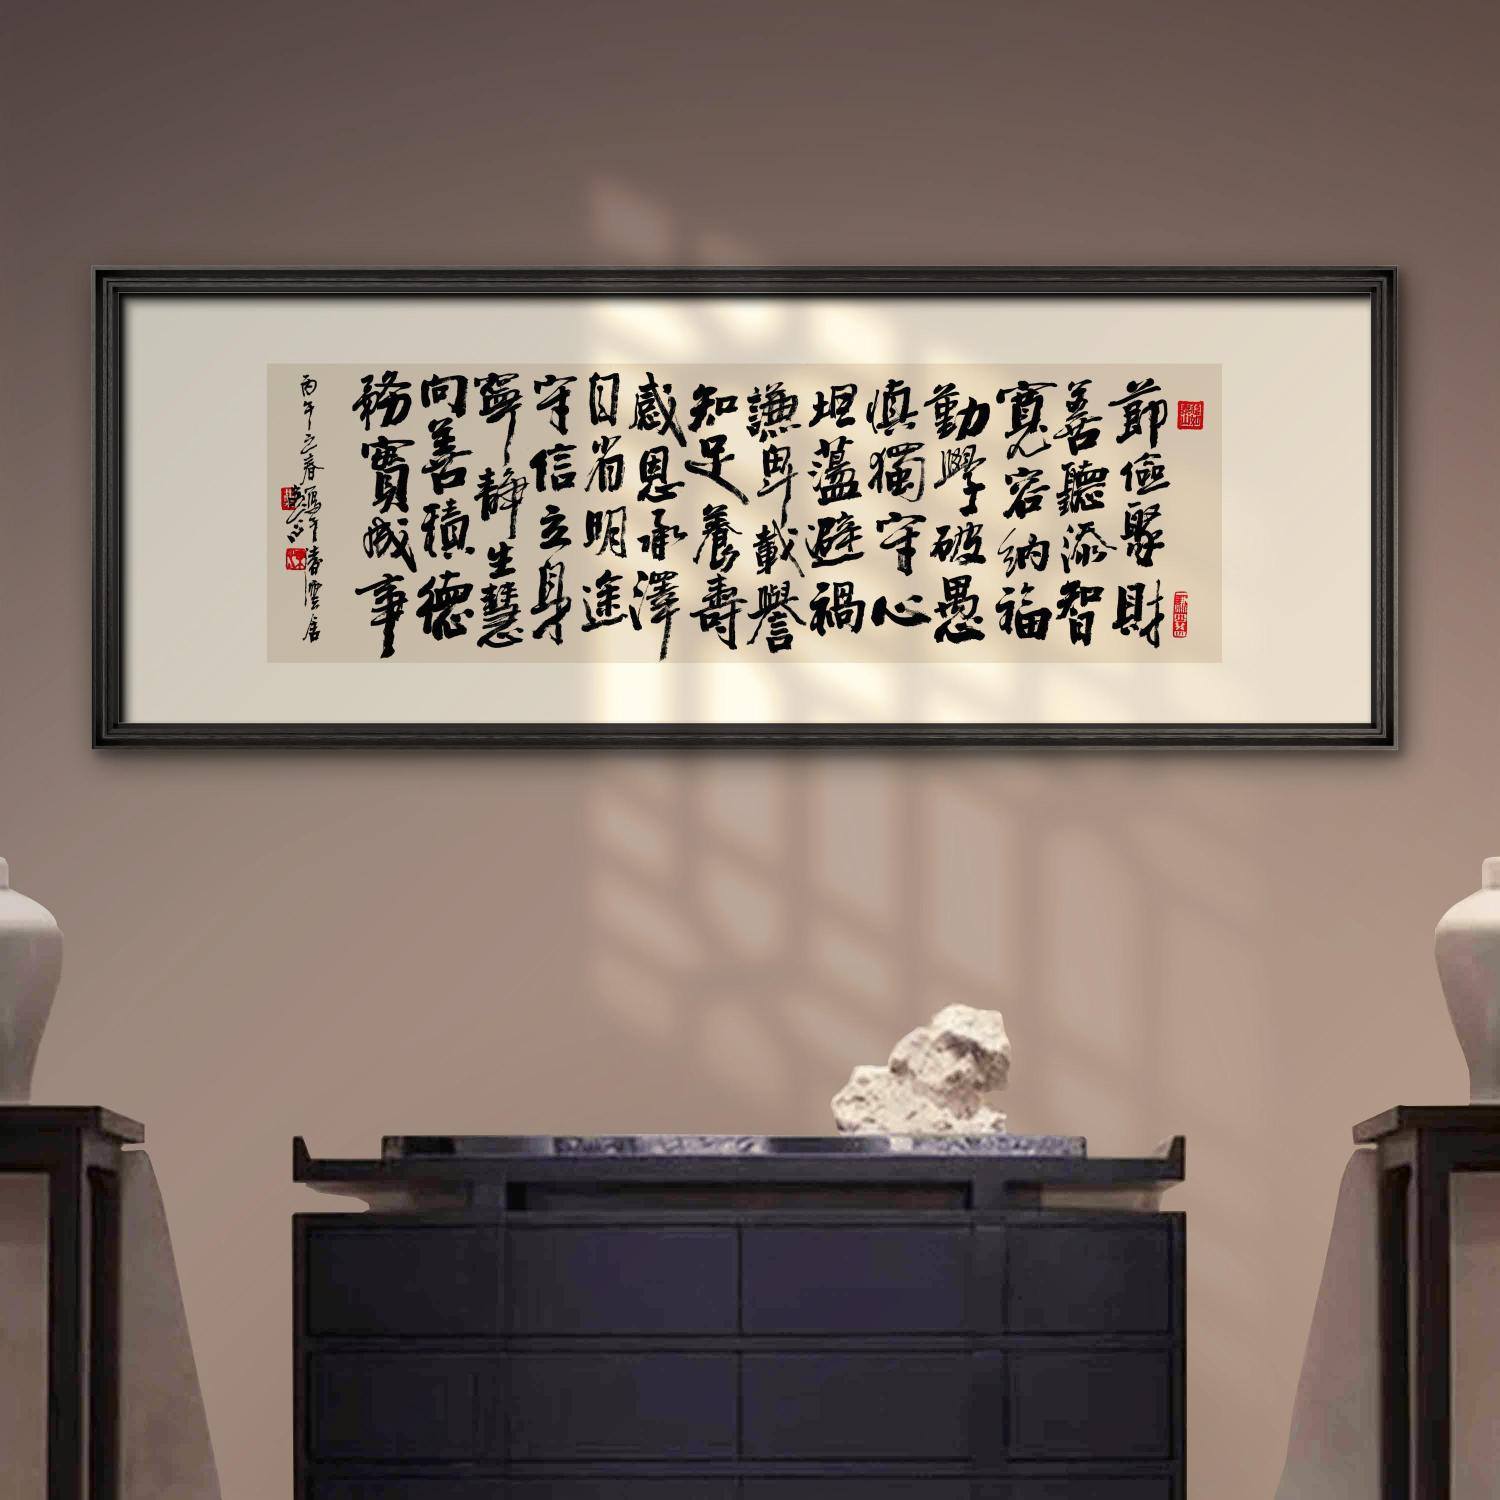 節儉聚財
善聽添智
寬容納福
勤學破愚
慎獨守心
坦蕩避禍
謙卑載譽
知足養壽
感恩承澤
自省明途
守信立身
寧靜生慧
向善積德
務實成事
丙午之春寫於濤雲居